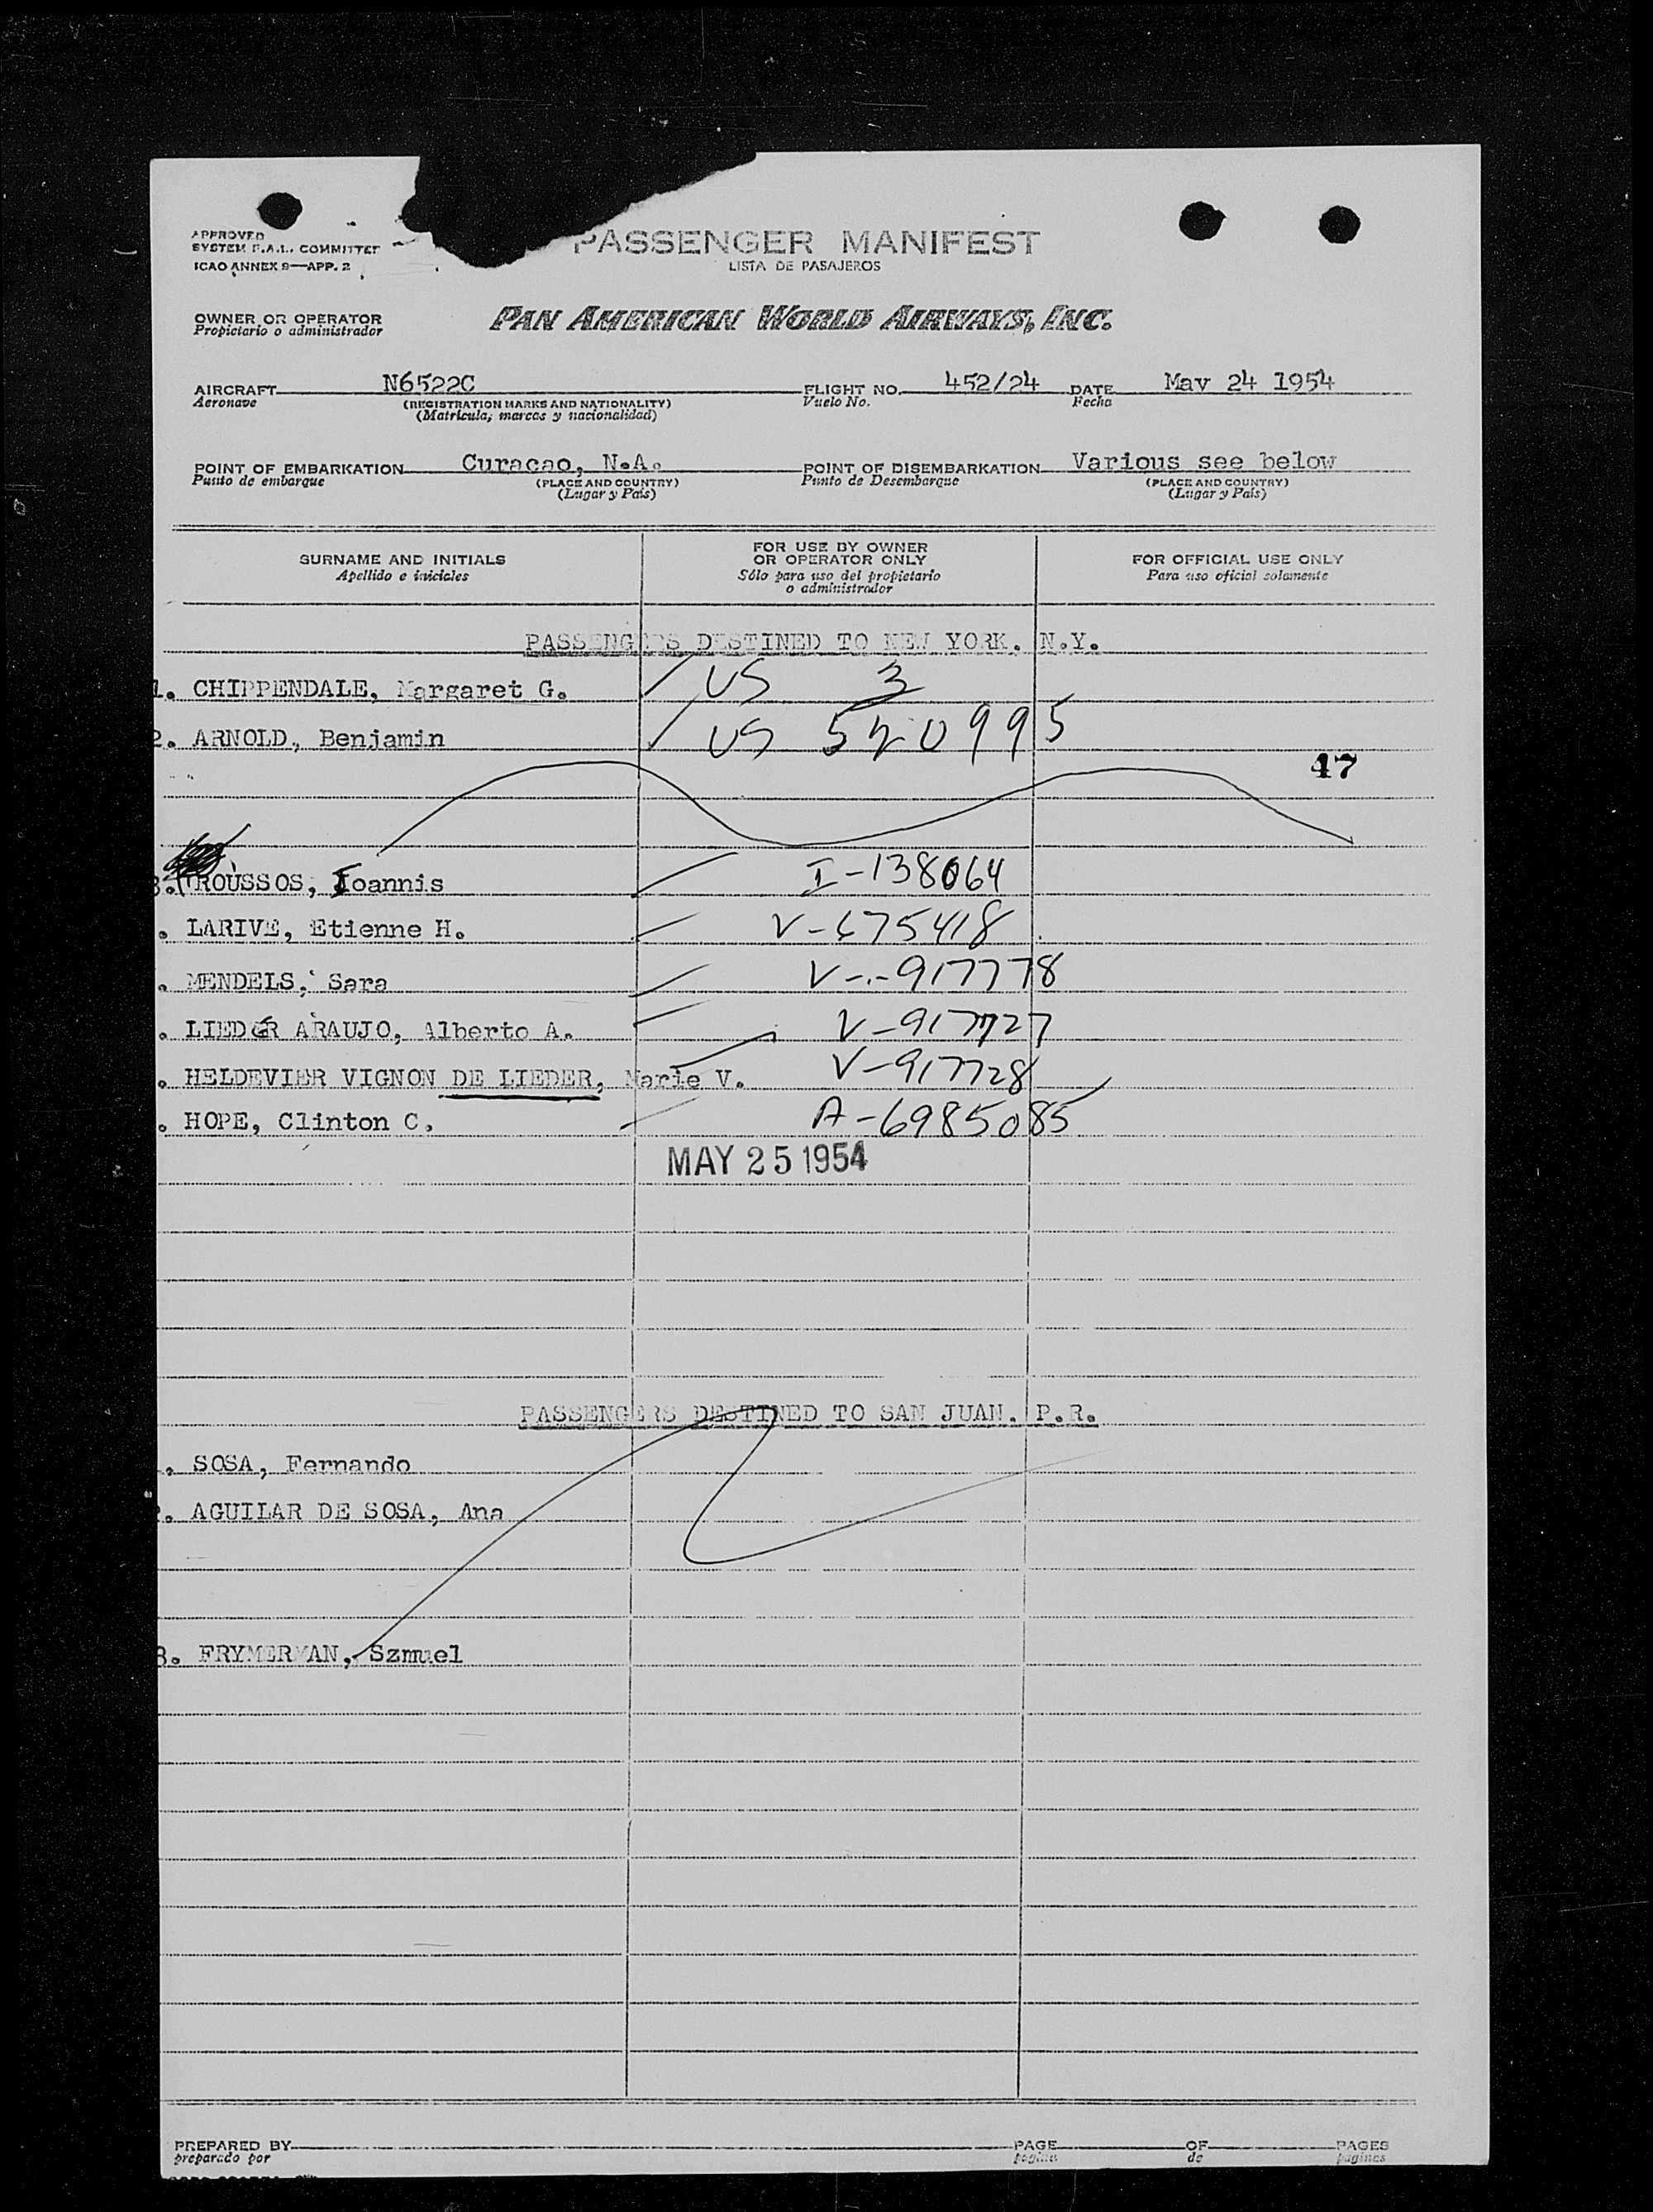 APPROVED
SYSTEM F.A.L. COMMITTEE
ICAO ANNEX 9—APP. 2
PASSENGER MANIFEST
LISTA DE PASAJEROS
OWNER OR OPERATOR
Propietario o administrador
PAN AMERICAN WORLD AIRWAYS, INC.
AIRCRAFT N6522C FLIGHT NO. 452/24 DATE May 24 1954
Aeronave (REGISTRATION MARKS AND NATIONALITY) Vuelo No. Fecha
(Matrícula, marcas y nacionalidad)
POINT OF EMBARKATION Curacao, N.A. POINT OF DISEMBARKATION Various see below
Punto de embarque (PLACE AND COUNTRY) Punto de Desembarque (PLACE AND COUNTRY)
(Lugar y País) (Lugar y País)
SURNAME AND INITIALS FOR USE BY OWNER OR OPERATOR ONLY FOR OFFICIAL USE ONLY
Apellido e iniciales Sólo para uso del propietario o administrador Para uso oficial solamente
PASSENGERS DESTINED TO NEW YORK, N.Y.
1. CHIPPENDALE, Margaret G. US 3
2. ARNOLD, Benjamin US 520995
47
3. ROUSSOS, Ioannis I-138064
. LARIVE, Etienne H. V-675418
. MENDELS, Sara V-917778
. LIEDER ARAUJO, Alberto A. V-917727
. HELDEVIER VIGNON DE LIEDER, Marie V. V-917728
. HOPE, Clinton C. A-6985085
MAY 25 1954
PASSENGERS DESTINED TO SAN JUAN, P.R.
. SOSA, Fernando
2. AGUILAR DE SOSA, Ana
3. FRYMERMAN, Szmuel
PREPARED BY PAGE OF PAGES
preparado por página de páginas